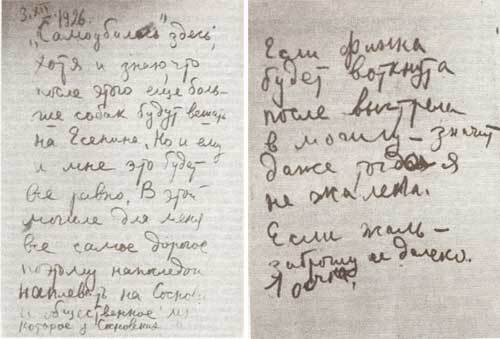 3.XII 1926.
"Самоубилась" здесь,
хотя и знаю, что
после этого еще боль-
ше собак будут вешать
на Есенина. Но и ему
и мне это будет
все равно. В этой
могиле для меня
все самое дорогое
поэтому напоследок
наплевать на Сосновс
и общественное м
которое у Сосновский
Если финка
будет воткнута
после выстрела
в могилу – значит
даже я
не жалела.
Если жаль –
заброшу ее далеко.
1 осечка